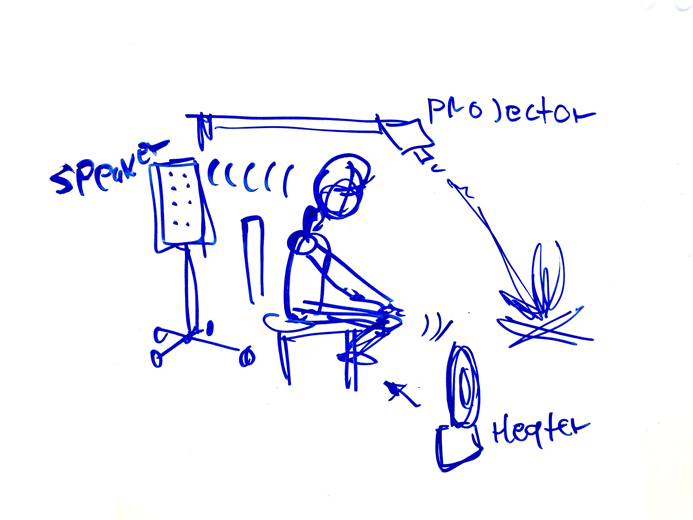 Projector
Speaker
Heater